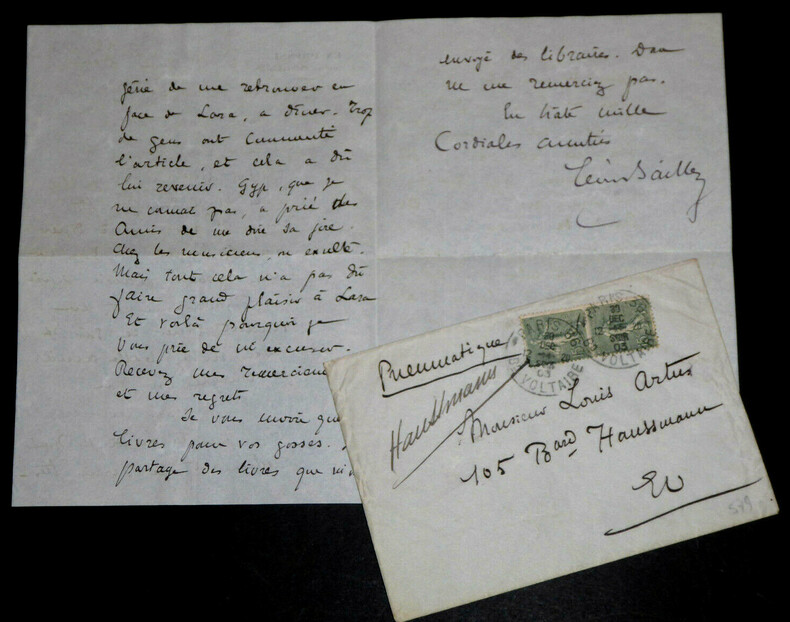 génie de me retrouver en
face de Lara, a dîner. Trop
de gens ont commenté
l'article, et cela a dû
lui revenir. Gyp, que je
ne connat pas, a prié des
Amis de me dire sa joie.
Chez les musiciens, on exulte.
Mais tout cela n'a pas dû
faire grand plaisir à Lara
Et voilà pourquoi je
vous prie de m'excuser.
Recevez mes remerciem
et mes regrets
Je vous envoie que
livres pour vos gosses.
partage des livres que m'
envoyé des libraires. Donc
ne me remerciez pas.
En hâte mille
Cordiales amitiés
Léon Bailby
Pneumatique
Haussmann
Monsieur Louis Artus
105 Bard Haussmann
EV
PARIS
VOLTAIRE
DEC
VOLTAIRE
579